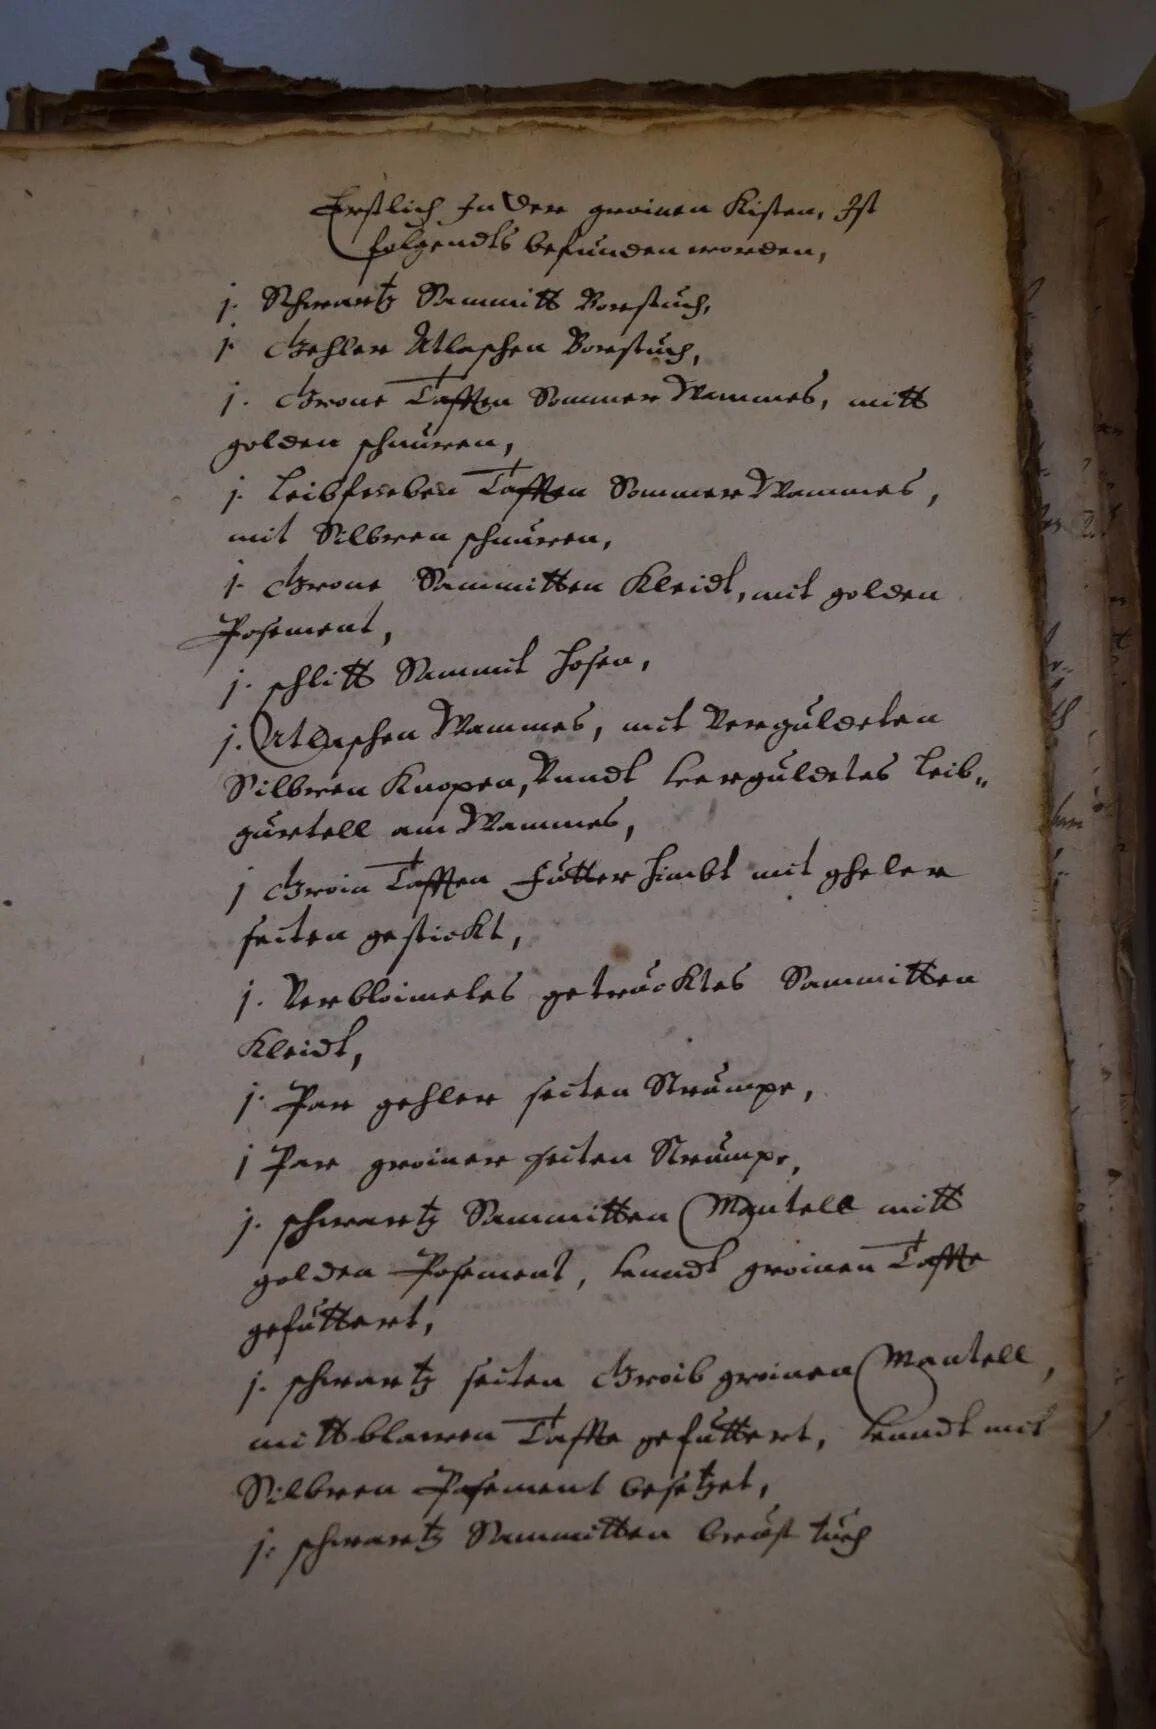 Erstlich In der groinen Kisten, Ist
folgendts befunden worden,
j. Schwartz Sammitt Borstuch,
j. Gehler Atlaschen Borstuch,
j. Grone Tafften Sommer Wammes, mitt
golden schnüren,
j. Leibfarben Tafften Sommer Wammes,
mit Silbren schnüren,
j. Grone Sammitten Kleidt, mit golden
Posement,
j. schlitt Sammit hosen,
j. Atlaschen Wammes, mit Verguldeten
Silbren Knopen, Vnndt Verguldetes Leib„
gürtell am Wammes,
j Groin Tafften Futter himbt mit gheler
seiten gestickt,
j. Verbloimetes getrücktes Sammitten
Kleidt,
j. Par gehler seiten Strümpe,
j Par groiner seiten Strümpe,
j. schwartz Sammitten Mantell mitt
golden Posement, Vnndt groinen Taffte
gefüttert,
j. schwartz seiten Grob grönen Mantell,
mitt blawen Taffte gefüttert, Vnndt mit
Silbren Posement besetzet,
j. schwartz Sammitten brüst tuch